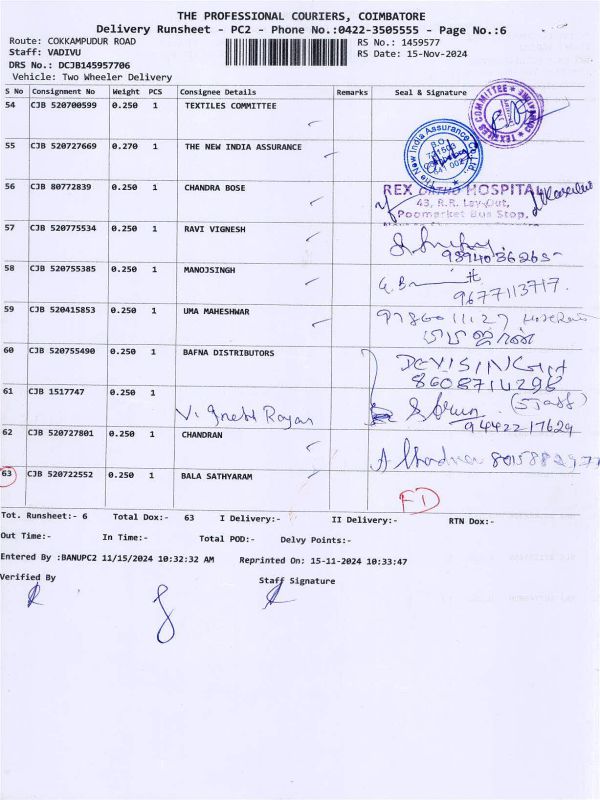 THE PROFESSIONAL COURIERS, COIMBATORE
Delivery Runsheet - PC2 - Phone No.:0422-3505555 - Page No.:6
Route: COKKAMPUDUR ROAD
RS No.: 1459577
Staff: VADIVU
RS Date: 15-Nov-2024
DRS No.: DCJB145957706
Vehicle: Two Wheeler Delivery
S No Consignment No Weight PCS Consignee Details Remarks Seal & Signature
54 CJB 520700599 0.250 1 TEXTILES COMMITTEE
TEXTILES COMMITTEE
55 CJB 520727669 0.270 1 THE NEW INDIA ASSURANCE
The New India Assurance Co. Ltd.
56 CJB 80772839 0.250 1 CHANDRA BOSE
REX ORTHO HOSPITAL
43, R.R. Lay-Out,
Poomarket Bus Stop,
57 CJB 520775534 0.250 1 RAVI VIGNESH
58 CJB 520755385 0.250 1 MANOJSINGH
9677113717.
59 CJB 520415853 0.250 1 UMA MAHESHWAR
60 CJB 520755490 0.250 1 BAFNA DISTRIBUTORS
8608714298
61 CJB 1517747 0.250 1
(Staff)
9442217629
62 CJB 520727801 0.250 1 CHANDRAN
63 CJB 520722552 0.250 1 BALA SATHYARAM
Tot. Runsheet:- 6 Total Dox:- 63 I Delivery:- II Delivery:- RTN Dox:-
Out Time:- In Time:- Total POD:- Delvy Points:-
Entered By :BANUPC2 11/15/2024 10:32:32 AM Reprinted On: 15-11-2024 10:33:47
Verified By Staff Signature